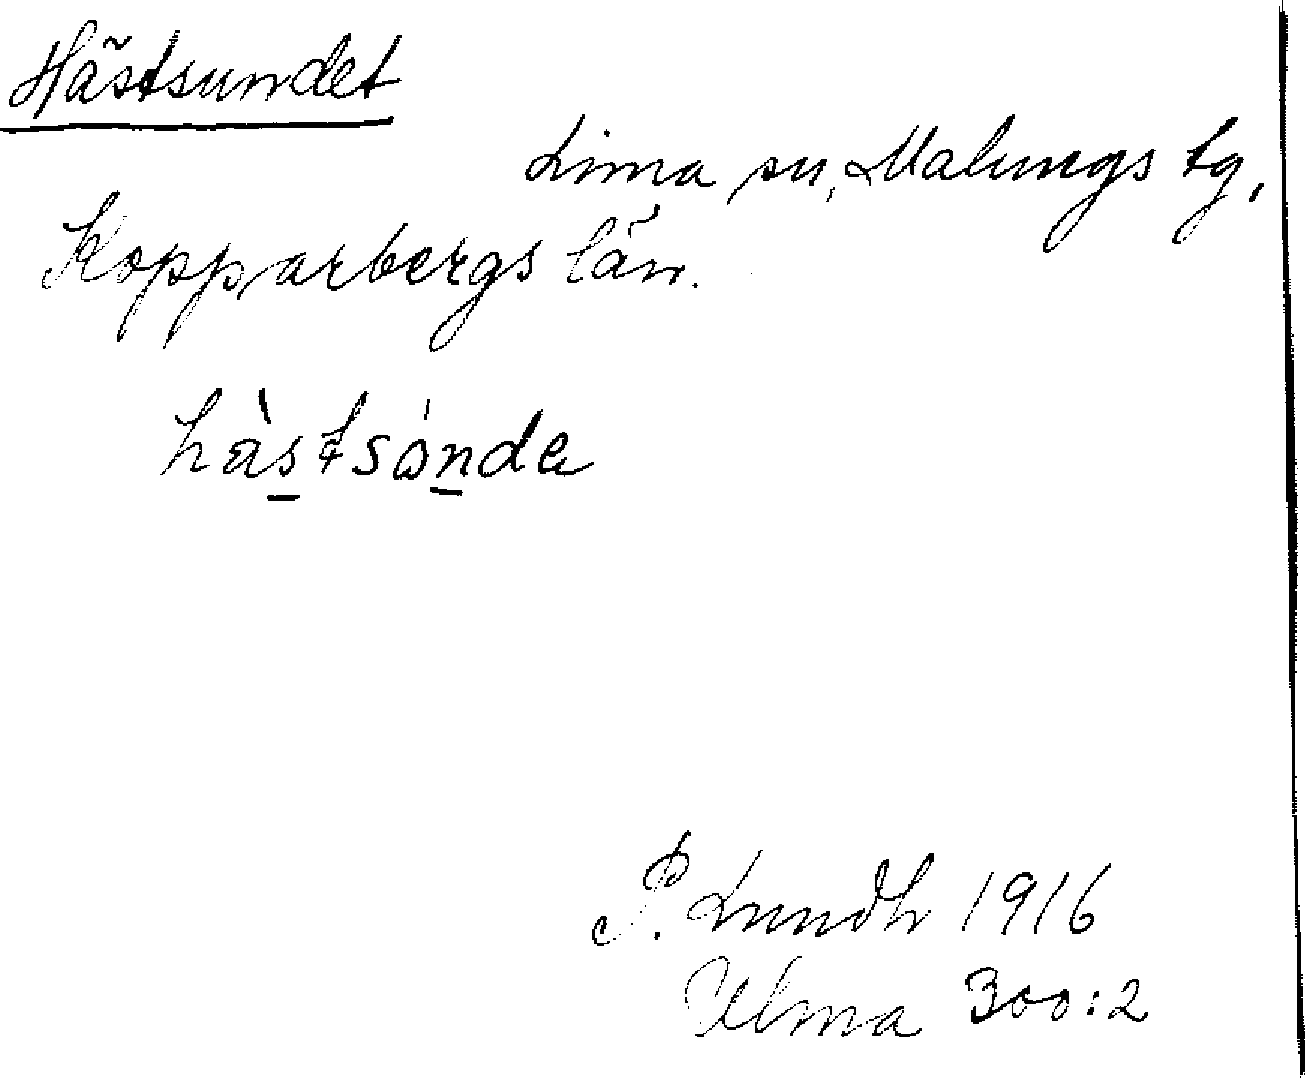 Hästsundet
Lima sn, Malungs tg,
Kopparbergs län.
hàstsónda
P. Lundh 1916
Ulma 300:2